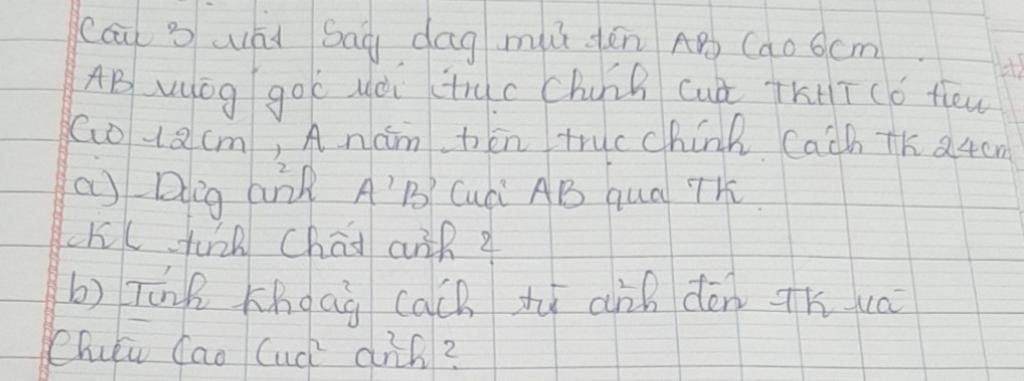 Câu 3 vật ság dạg mũi tên AB cao 6cm.
AB vuôg góc với trục chính của TKHT có tiêu
cự 12cm, A nằm trên trục chính. Cách TK 24cm
a) Dựg ảnh A'B' của AB qua TK.
KL tính chất ảnh?
b) Tính khoảg cách từ ảnh đến TK và
chiều cao của ảnh?